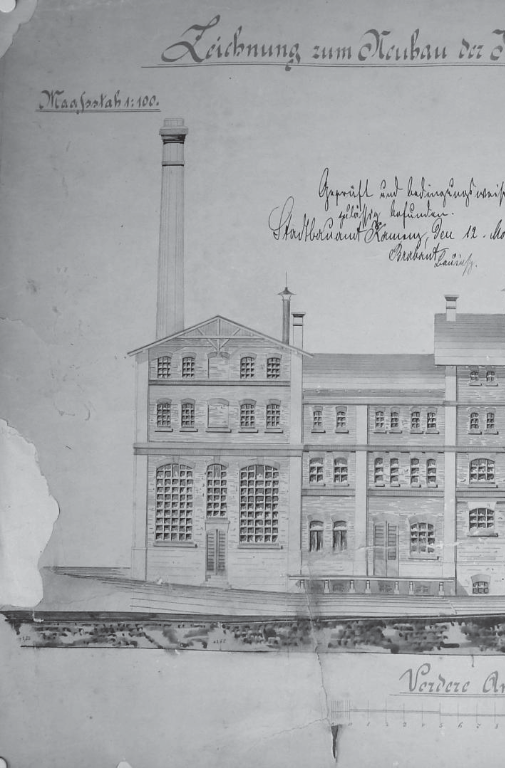 Zeichnung zum Neubau der
Maaßstab 1:100.
Geprüft und bedingungsweise
zulässig befunden.
Stadtbauamt Kamenz, den 12.
Vordere An